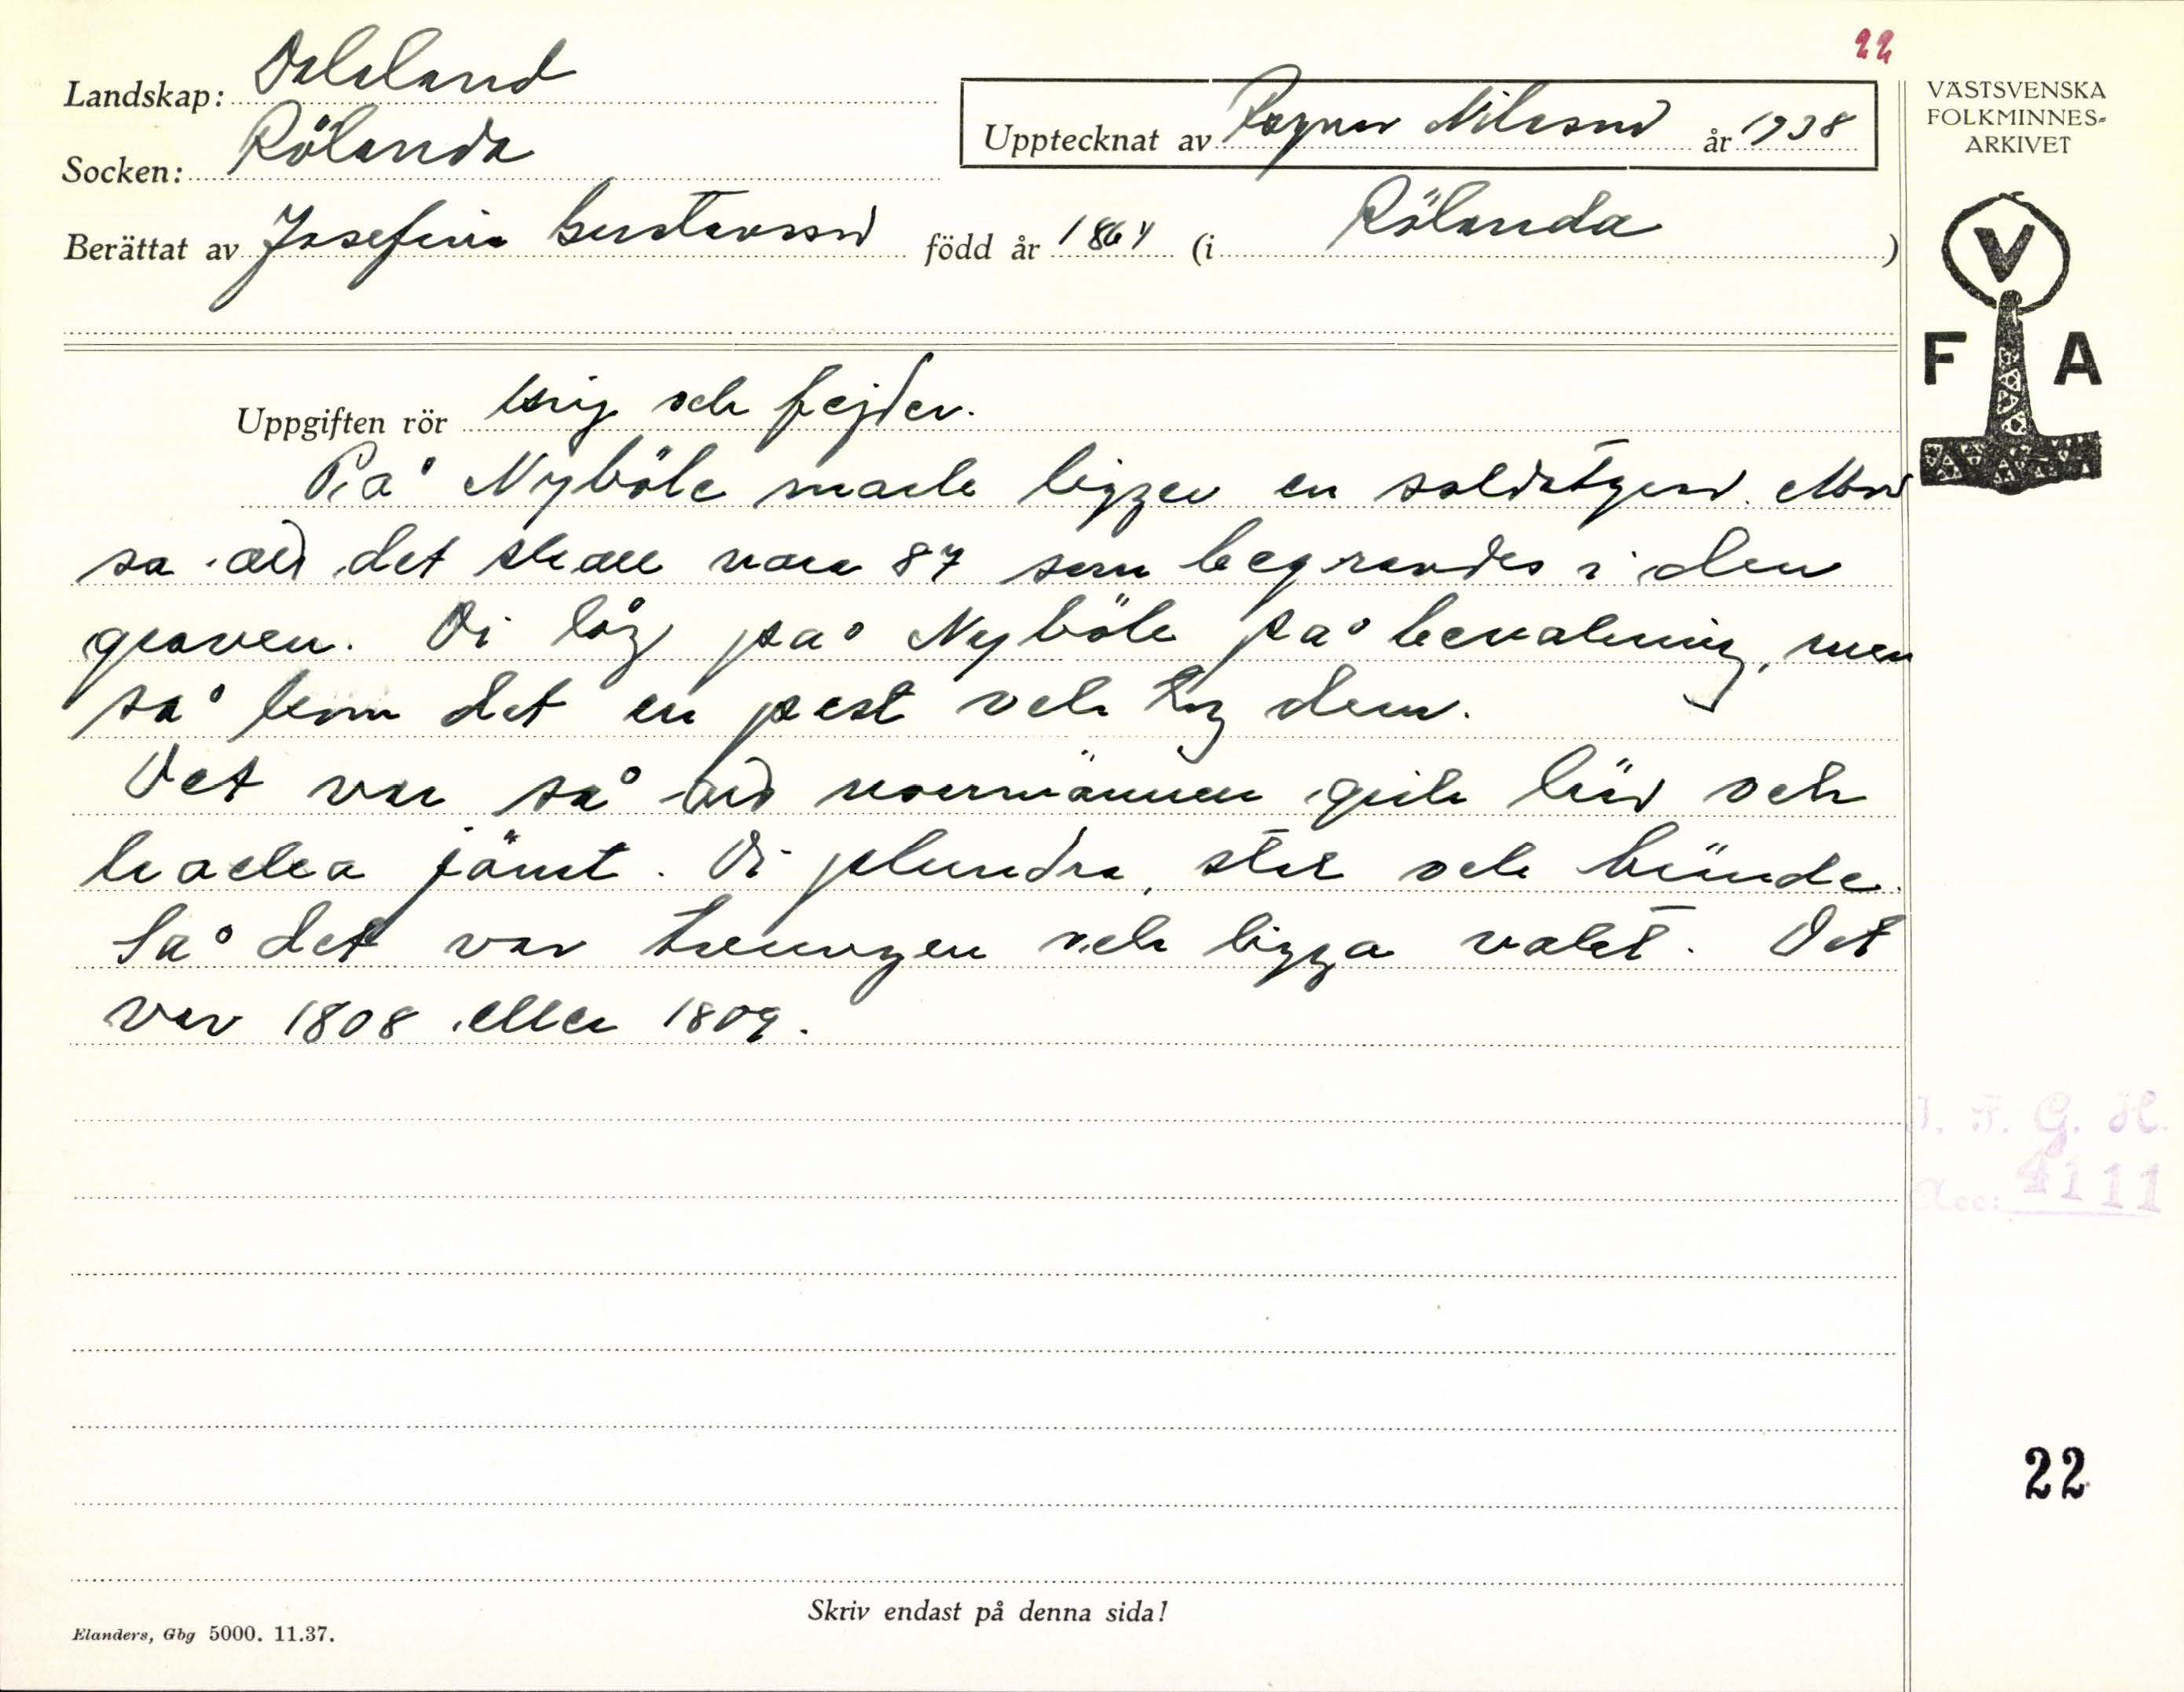 22
Landskap: Dalsland
Upptecknat av Ragnar Nilsson år 1938
VÄSTSVENSKA
FOLKMINNES-
ARKIVET
Socken: Rölanda
Berättat av Josefina Gustavsson född år 1864 (i Rölanda)
V
F A
Uppgiften rör Krig och fejder.
På Nyböle mark ligger en
sa det skall vara 87 som begravdes i den
graven. Di låg på Nyböle på bevakning, men
så kom det en pest och tog dem.
Det var så norrmännen gick över och
jämt. Di plundra, stal och
Så det var tvungen och ligga vakt. Det
var 1808 eller 1809.
J. F. G. H.
Acc: 4111
22
Skriv endast på denna sida!
Elanders, Gbg 5000. 11.37.